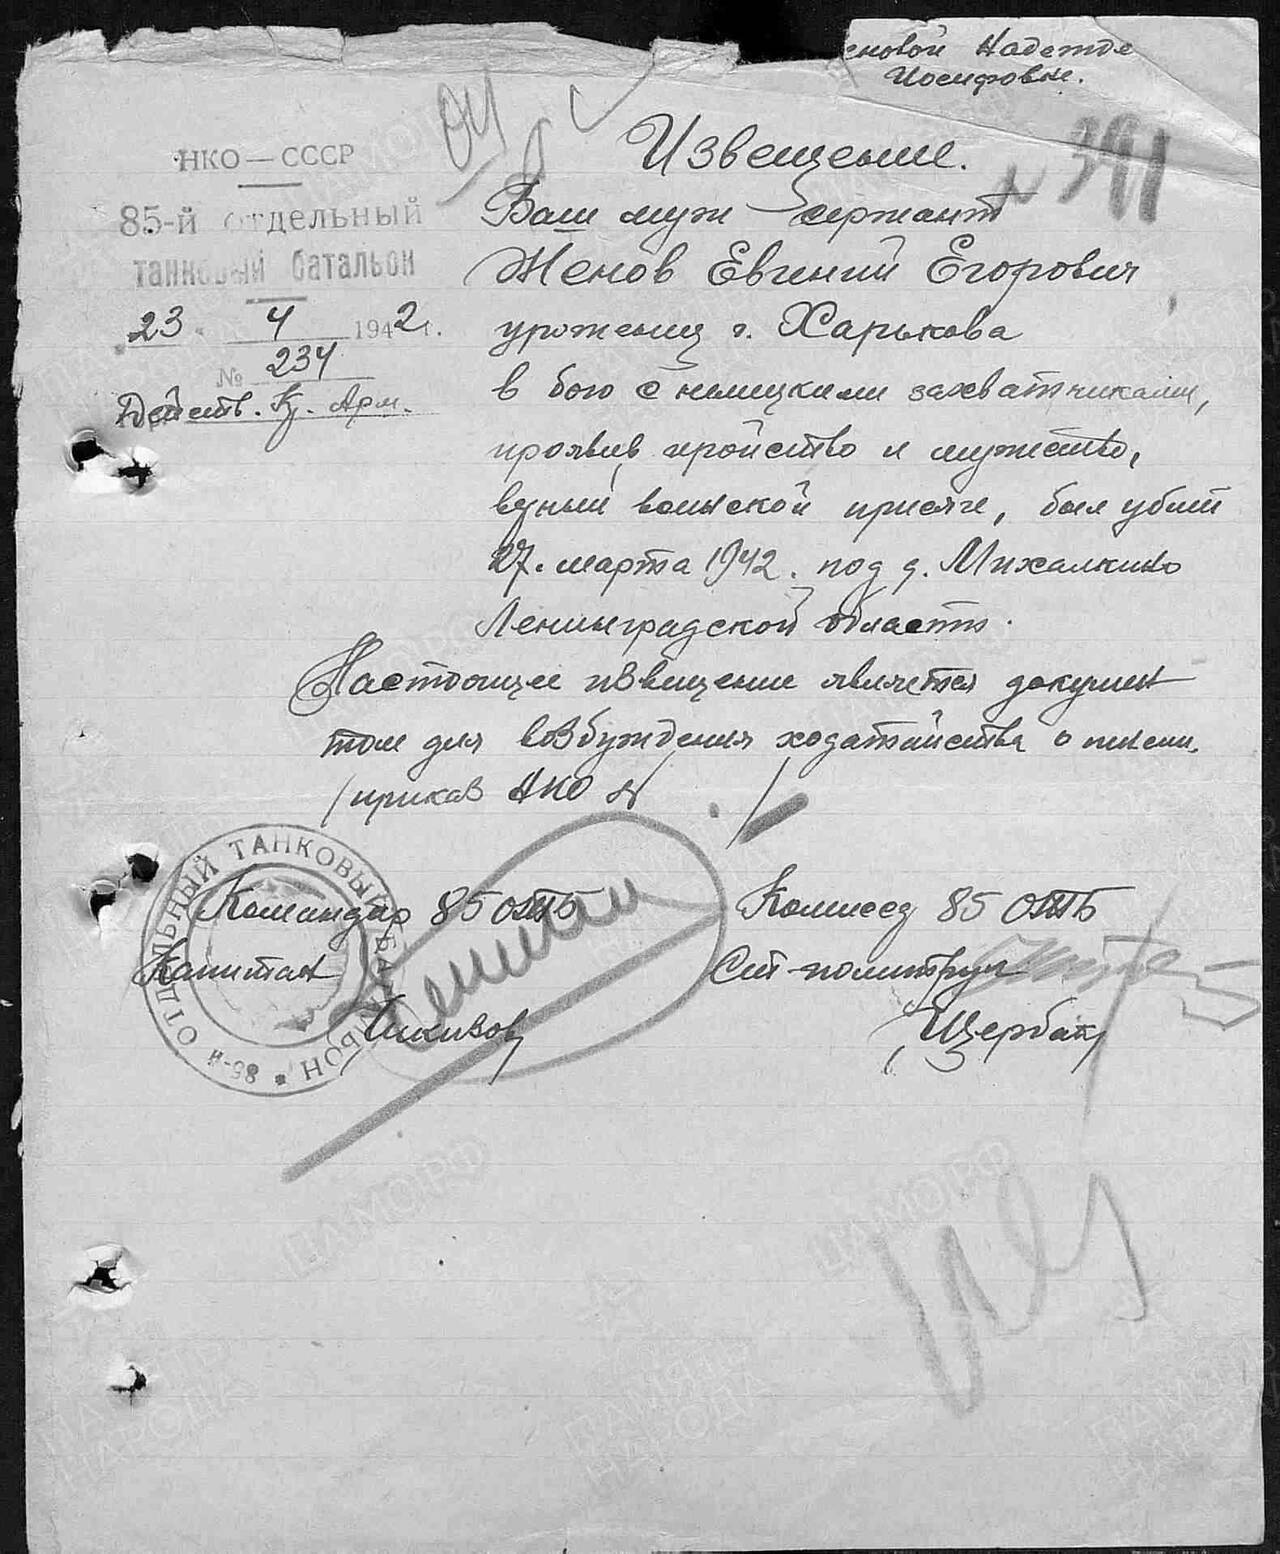 еновой Надежде
Иосифовне.
Извещение.
№ 391
НКО — СССР
85-й отдельный
танковый батальон
23 4 1942 г.
№ 234
Действ. Кр. Арм.
Ваш муж сержант
Женов Евгений Егорович
уроженец г. Харькова
в бою с немецкими захватчиками,
проявив геройство и мужество,
верный воинской присяге, был убит
27. марта 1942. под д. Михалкино
Ленинградской области.
Настоящее извещение является докумен
том для возбуждения ходатайства о пенси.
/приказ НКО № /
Командир 85 ОТБ
Капитан
Комиссар 85 ОТБ
Ст-политрук
Щербак
85-й ОТДЕЛЬНЫЙ ТАНКОВЫЙ БАТАЛЬОН *
ПАМЯТЬ
НАРОДА
ПАМОРФ